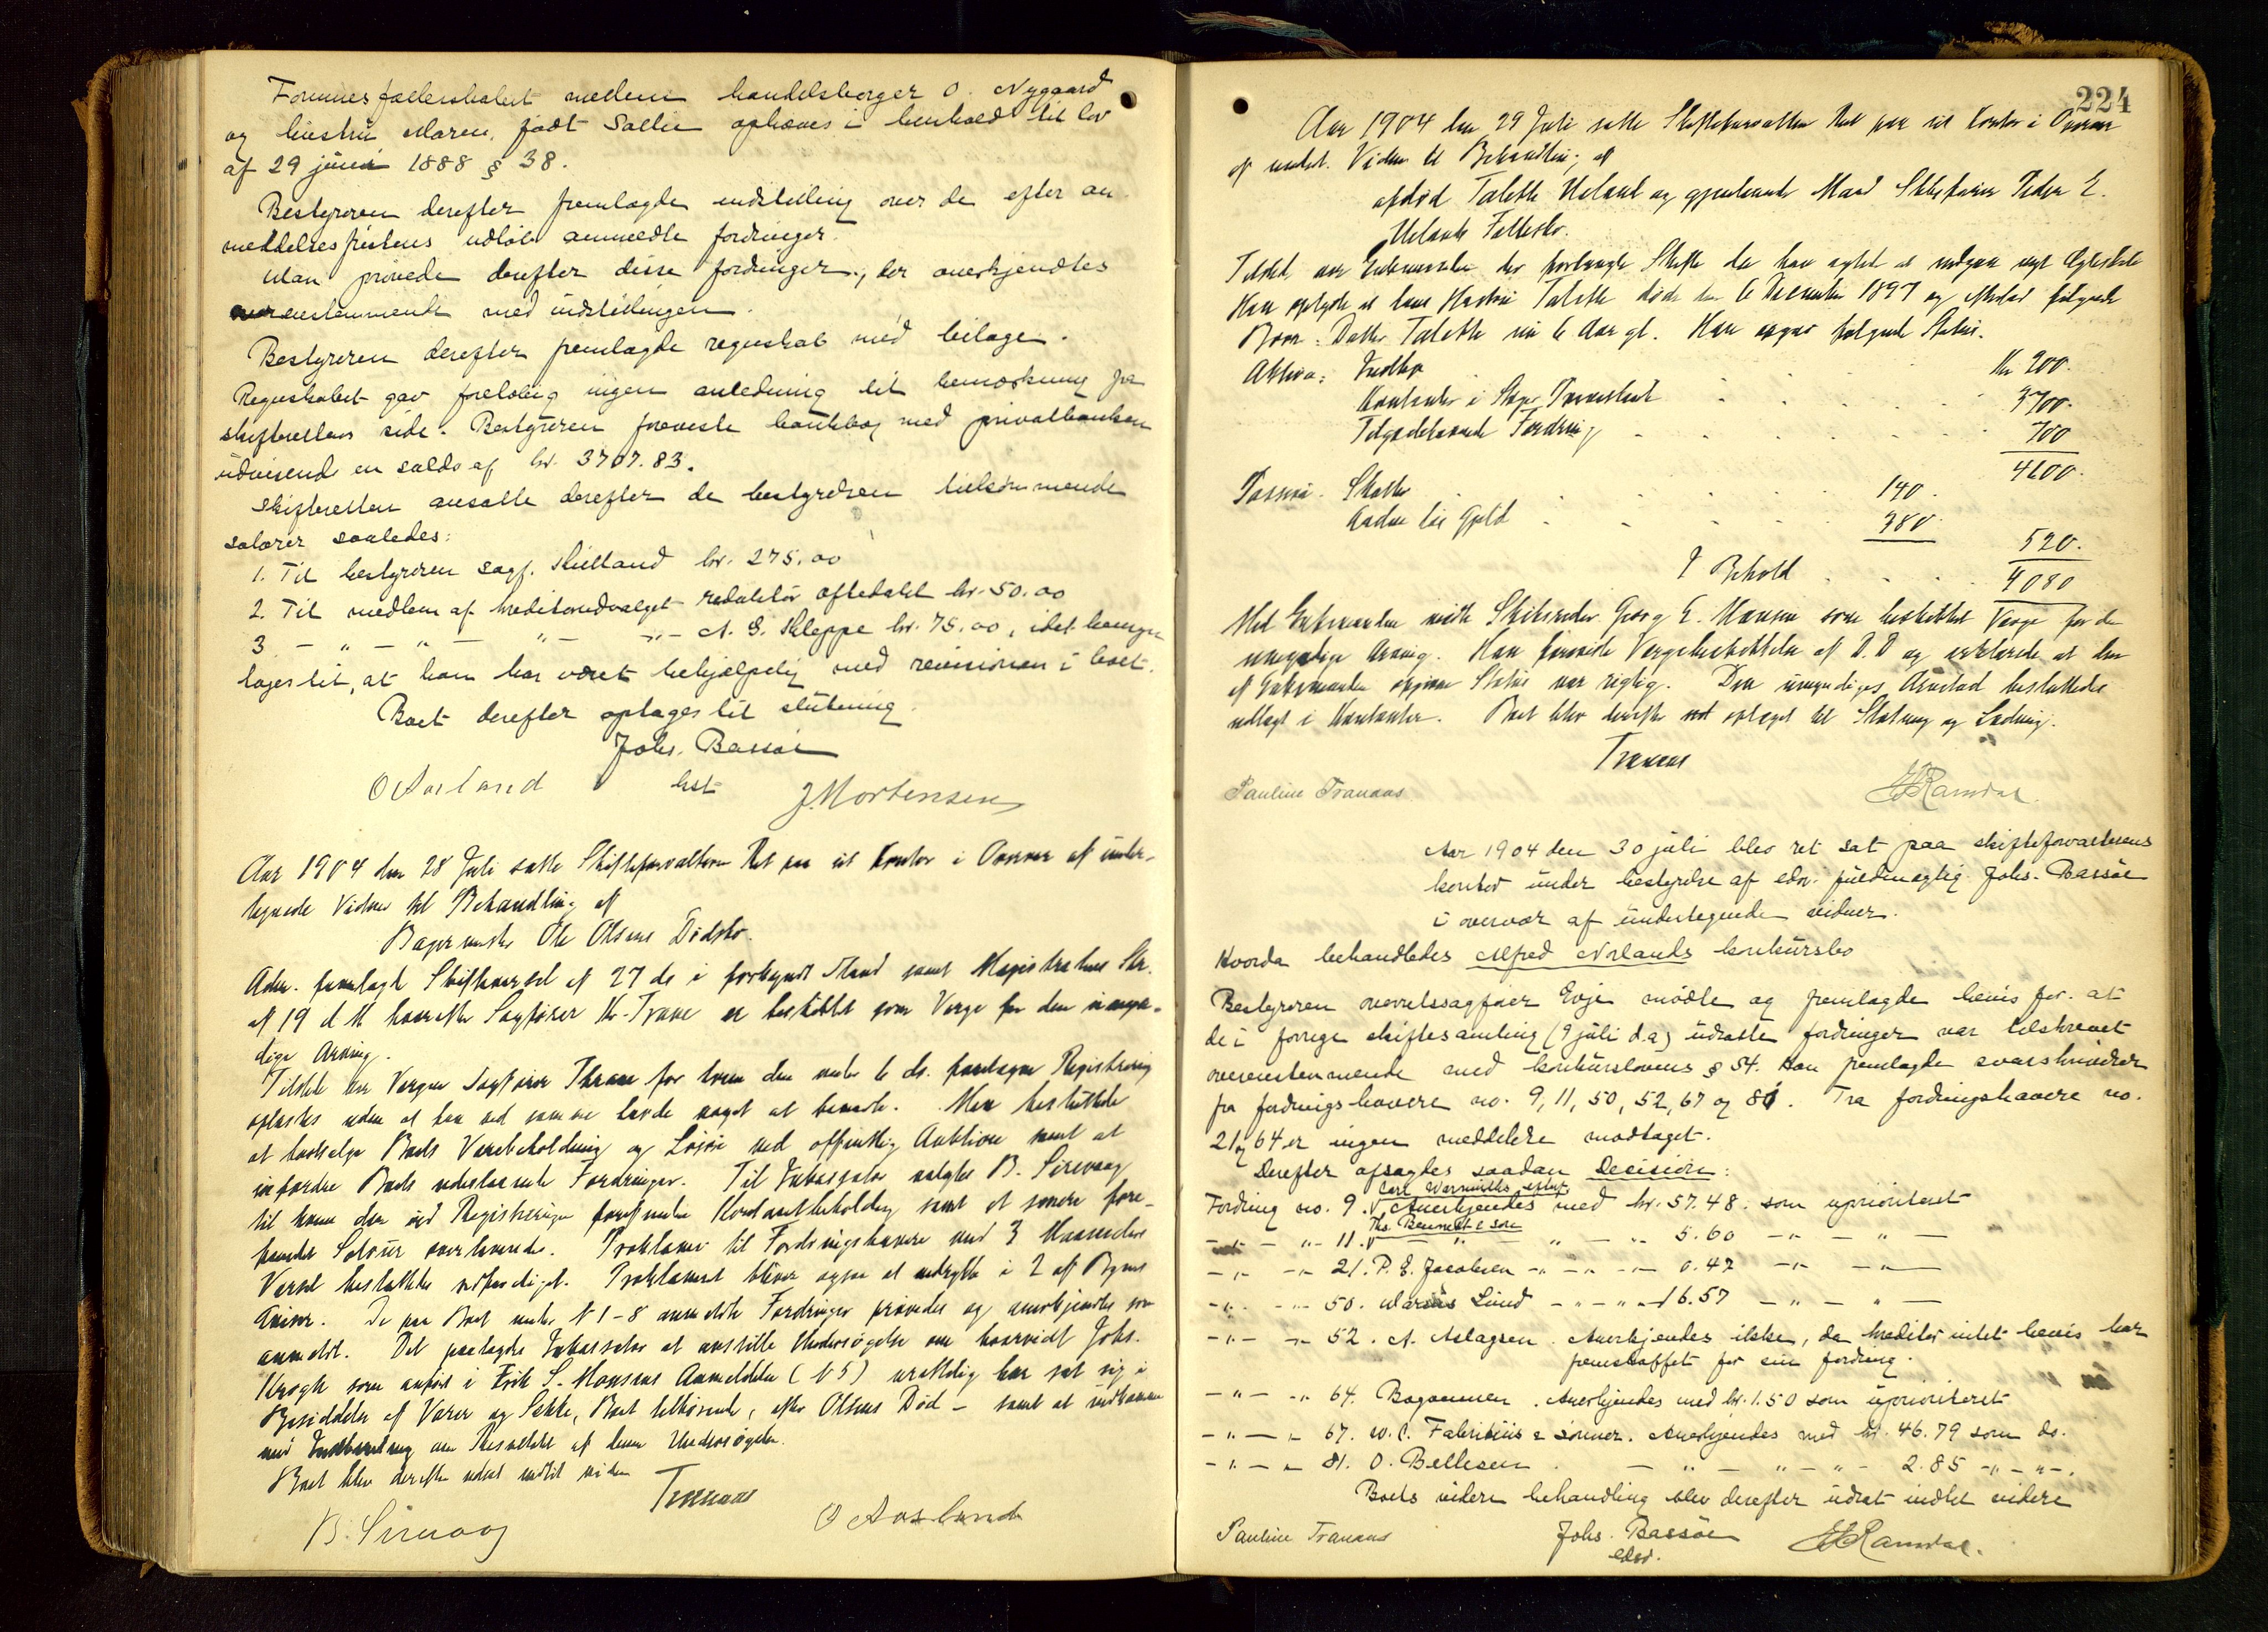 Formuesfællesskabet mellem handelsborger O. Nygaard
og hustru Maren, født Sallie ophæves i henhold til lov
af 29 juni 1888 § 38.
Bestyreren derefter fremlagde indstilling over de efter an-
meldelsesfristens udløb anmeldte fordringer.
Man prøvede derefter disse fordringer, der anerkjendtes
overenstemmende med indstillingen.
Bestyreren derefter fremlagde regnskab med bilage.
Regnskabet gav foreløbig ingen anledning til bemerkning fra
skifterettens side. Bestyreren foreviste bankbog med privatbanken
udvisende en saldo af kr. 3707.83.
Skifteretten ansatte derefter de bestyrelsen tilkommende
salærer saaledes:
1. Til bestyreren sagf. Kielland kr. 275.00
2. Til medlem af kreditorudvalget redaktør Oftedahl kr. 50.00
3 - " - " - " - " - A. G. Kleppe kr. 75.00, idet hensyn
toges til, at han har været behjælpelig med revisionen i boet.
Boet derefter optages til slutning.
Johs. Bassøe
O Aasland
J. Mortensen
Aar 1904 den 28 Juli satte Skifteforvalteren Ret paa sit Kontor i Overvær af under-
tegnede Vidner til Behandling af
Bagermester Ole Olsens Dødsbo.
Adm. fremlagde Skiftevarsel af 27 ds i forkyndt Stand samt Magistratens Skr.
af 19 d M hvorefter Sagfører Kr. Trane er beskikket som Verge for den umyn-
dige Arving.
Tilstede var Vergen Sagfører Thrane for hvem den under 6 ds. foretagne Registrering
oplæstes uden at han ved samme havde noget at bemærke. Man besluttede
at bortsælge Boets Varebeholdning og Løsøre ved offentlig Auktion samt at
infordre Boets udestaaende Fordringer. Til Inkassator valgtes B. Sirevaag
til hvem den ved Registreringen forefundne Kontantbeholdning samt et senere fore-
fundet Sølvur overleveredes. Proklama til Fordringshavere med 3 Maaneders
Varsel besluttedes udfærdiget. Proklamaet bliver ogsaa at indrykke i 2 af Byens
Aviser. De paa Boet under N 1-8 anmeldte Fordringer prøvedes og anerkjendtes som
anmeldt. Det paalagdes Inkassator at anstille Undersøgelse om hvorvidt Johs.
Krogh som anført i Erik S. Monsens Anmeldelse (N 5) uretteligt har sat sig i
Besiddelse af Varer og Sække, Boet tilhørende, efter Olsens Død - samt at indkomme
med Indberetning om Resultatet af denne Undersøgelse.
Boet blev derefter udsat indtil videre
Tranaas
B. Sirevaag
O Aasland
224
Aar 1904 den 29 Juli satte Skifteforvalteren Ret paa sit Kontor i Overvær
af undert. Vidner til Behandling af
afdød Talette Ueland og gjenlevende Mand Skibsfører Peder E.
Uelands Fællesbo.
Tilsted var Enkemanden der forlangte Skifte da han agted at indgaa nyt Ægteskab
Han oplyste at hans Hustru Talette døde den 6 December 1897 og efterlod følgende
Børn: Datter Talette nu 6 Aar gl. Han opgav følgende Status.
Aktiva: Indbo Kr 200.
Kontanter i Skgr. Privatbank 3700.
Tilgodehavende Fordring 700
4600.
Passiva. Skatter 140.
Anden løs Gjeld 380. 520.
I Behold 4080
Med Enkemanden mødte Skibsreder Georg E. Monsen som beskikket Verge for den
umyndige Arving. Han foreviste Vergebeskikkelse af D.D og erklærede at den
af Enkemanden opgivne Status var rigtig. Den umyndiges Arvelod besluttedes
udlagt i Kontanter. Boet blev derefter optaget til Slutning og Lodning.
Tranaas
Pauline Tranaas
E Ramdal.
Aar 1904 den 30 juli blev ret sat paa skifteforvalterens
kontor under bestyrelse af edsv. fuldmægtig Johs. Bassøe
i overvær af undertegnede vidner.
Hvorda behandledes Alfred Norlands konkursbo
Bestyreren overretssagfører Evje mødte og fremlagde bevis for at
de i forrige skiftesamling (9 juli d.a) udsatte fordringer var tilskrevet
overenstemmende med konkurslovens § 54. Han fremlagde svarskrivelser
fra fordringshavere no. 9, 11, 50, 52, 67 og 81. Fra fordringshavere no.
21 og 64 er ingen meddelelse modtaget.
Derefter afsagdes saadan Decision:
Carl Warmuths efterf.
Fordring no. 9. V Anerkjendes med kr. 57.48. som uprioriteret
Ths. Bennett & søn
- " - " - 11. V - " - " - " - 5.60 - " - " -
- " - " 21. P. E. Jacobsen - " - " - " - 0.42 - " - " -
- " - " 50. Marius Lund - " - " - 16.57 - " - " -
- " - " 52. A. Aslagsen. Anerkjendes ikke, da kreditor intet bevis har
fremskaffet for sin fordring.
- " - " 64. Bogommen. Anerkjendes med kr. 1.50 som uprioriteret
- " - " 67. W. C. Fabritius & sønner. Anerkjendes med kr. 46.79 som do.
- " - " 81. O. Bellesen. - " - " - " - 2.85 - " - " -.
Boets videre behandling blev derefter udsat indtil videre
Pauline Tranaas
Johs. Bassøe
edsv.
E Ramdal.